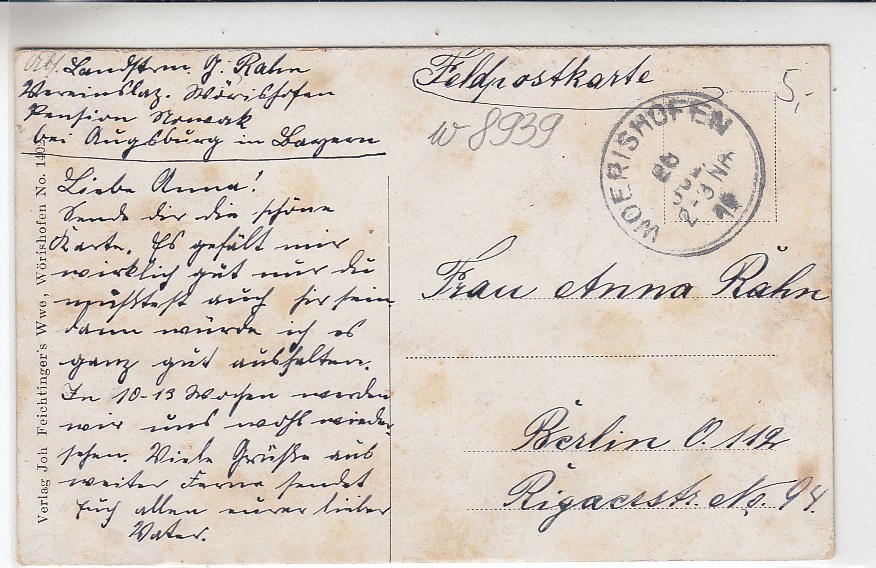 Abs. Landstrm. G. Rahn
Vereinslaz. Wörishofen
Pension Nowak
bei Augsburg in Bayern
Liebe Anna!
Sende dir die schöne
Karte. Es gefält mir
wirklich gut nur du
müßtest auch hir sein
dann würde ich es
ganz gut aushalten.
In 10-13 Wochen werden
wir uns wohl wieder
sehen. Viele Grüße aus
weiter Ferne sendet
Euch allen eurer lieber
Vater.
Verlag Joh Feichtinger's Wwe, Wörishofen No. 1402
Feldpostkarte
5,-
W 8939
WOERISHOFEN
26
JUL
2-3 NM
Frau Anna Rahn
Berlin O. 112
Rigaerstr. No. 94.